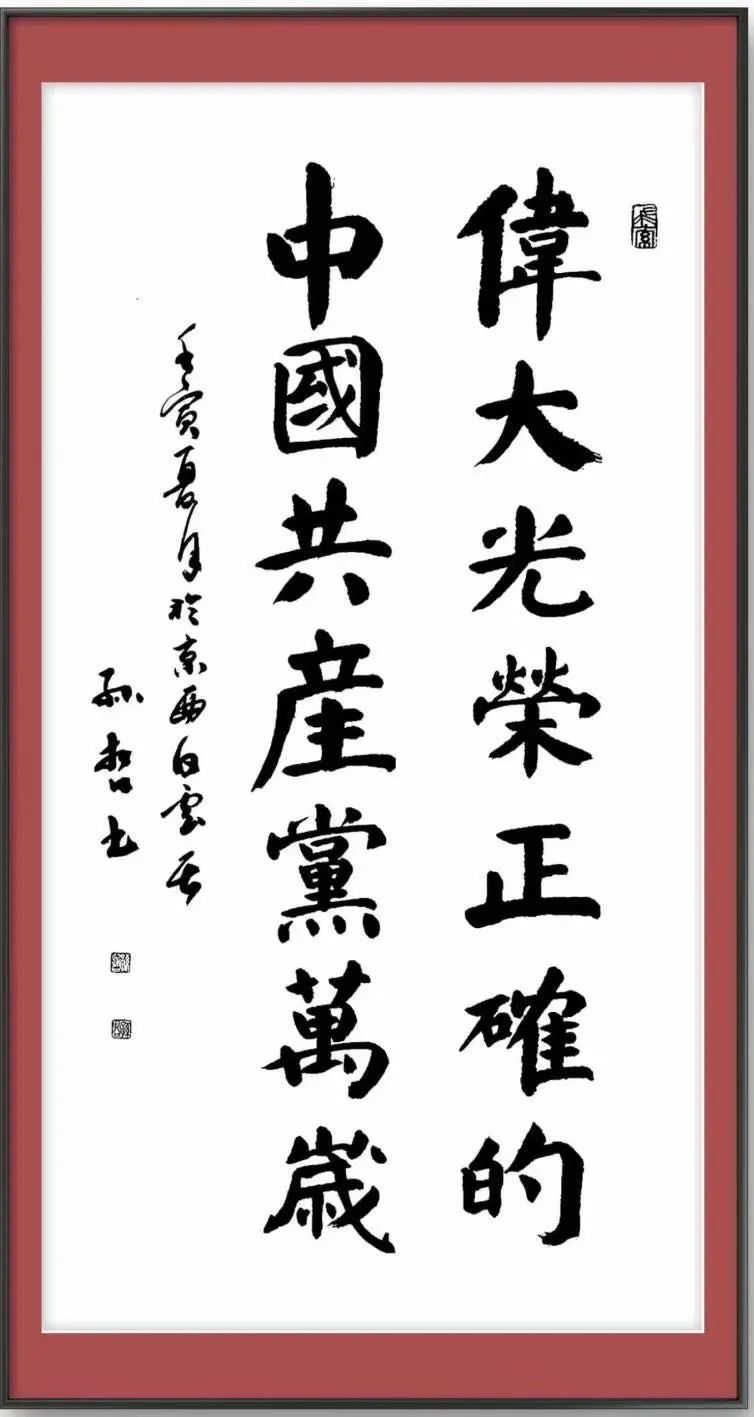 偉大光榮正確的
中國共產黨萬歲
壬寅夏月於京西白雲居
孫哲書